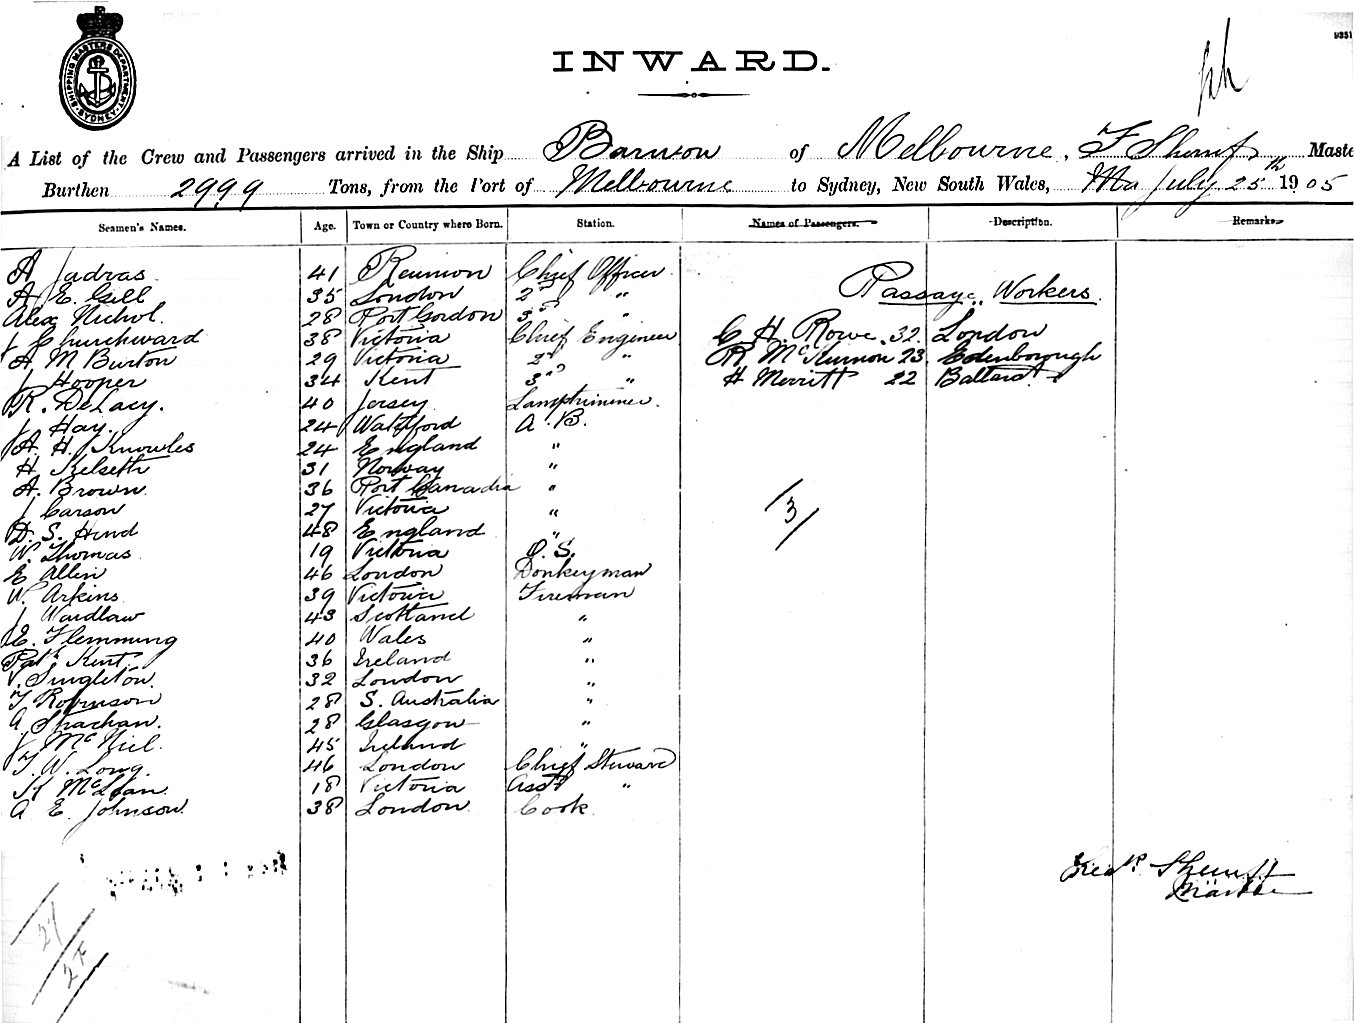 SHIPPING MASTER'S DEPARTMENT SYDNEY
9351
INWARD.
A List of the Crew and Passengers arrived in the Ship Barnton of Melbourne, F Sherriff Maste
Burthen 2999 Tons, from the Port of Melbourne to Sydney, New South Wales, July 25th 1905
Seamen's Names. Age. Town or Country where Born. Station. Names of Passengers. Description. Remarks
A Jadras 41 Reunion Chief Officer
A. E. Gill 35 London 2nd "
Alex Nichol 28 Port Gordon 3rd "
J Churchward 38 Victoria Chief Engineer
A M Burton 29 Victoria 2nd "
J Hooper 34 Kent 3rd "
R. DeLacy. 40 Jersey Lamptrimmer.
J Hay. 24 Waterford A.B.
A. H. Knowles 24 England "
H Kelseth 31 Norway "
A. Brown 36 Port "
J Carson 27 Victoria "
D. S. Hind 48 England "
W. Thomas 19 Victoria O.S.
E Allen 46 London Donkeyman
W. Arkins 39 Victoria Fireman
J Wardlaw 43 Scotland "
E. Flemming 40 Wales "
Patk Kent 36 Ireland "
V. Singleton. 32 London "
T Robinson 28 S. Australia "
A Strachan. 28 Glasgow "
J McNiel. 45 Ireland "
T. W. Long. 46 London Chief Steward
H McLean. 18 Victoria Asst "
A E Johnson. 38 London Cook.
Passage Workers
C H. Rowe. 32. London
R McKinnon 23. Edenborough
H Merritt 22 Ballarat
3/
Fredk Sherriff
Master
27
27